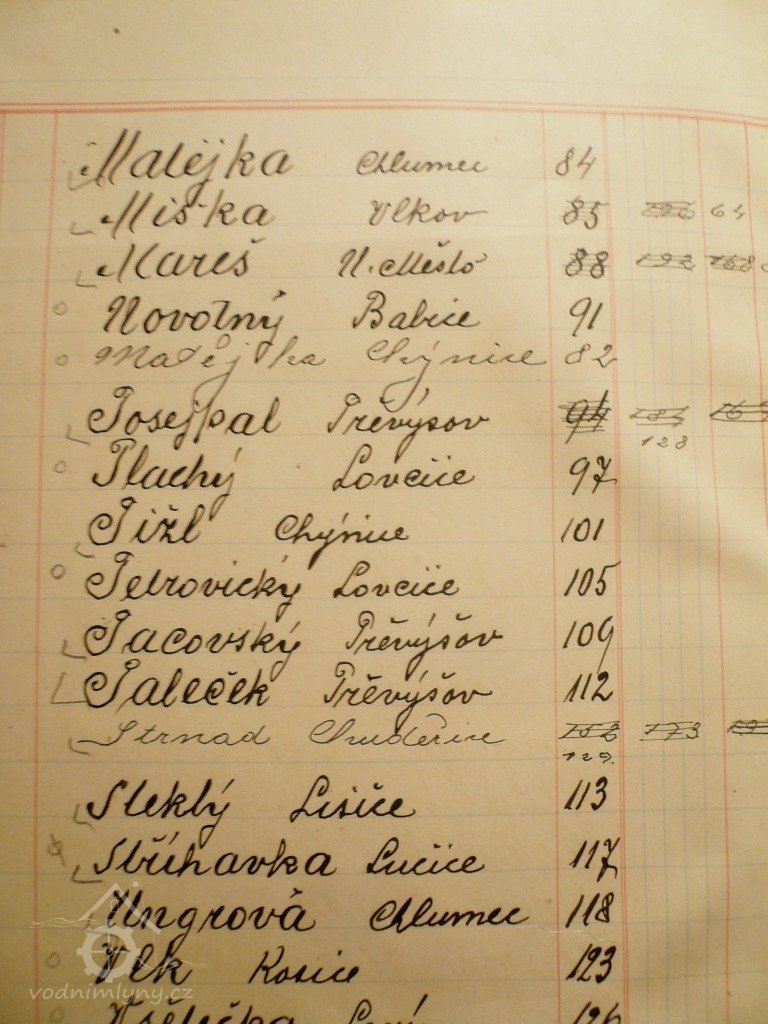 Matějka Chlumec 84
Miška Vlkov 85 64
Mareš N. Město 88 192 168
Novotný Babice 91
Matějka Chýnice 82
Posejpal Převýsov 94
128
Plachý Lovčice 97
Pižl Chýnice 101
Petrovický Lovčice 105
Pacovský Převýšov 109
Paleček Převýšov 112
Strnad Chuděřice 173
129.
Steklý Lišice 113
Stříhavka Lučice 117
Ungrová Chlumec 118
Vlk Kosice 123
Všetečka 126
vodnimlyny.cz